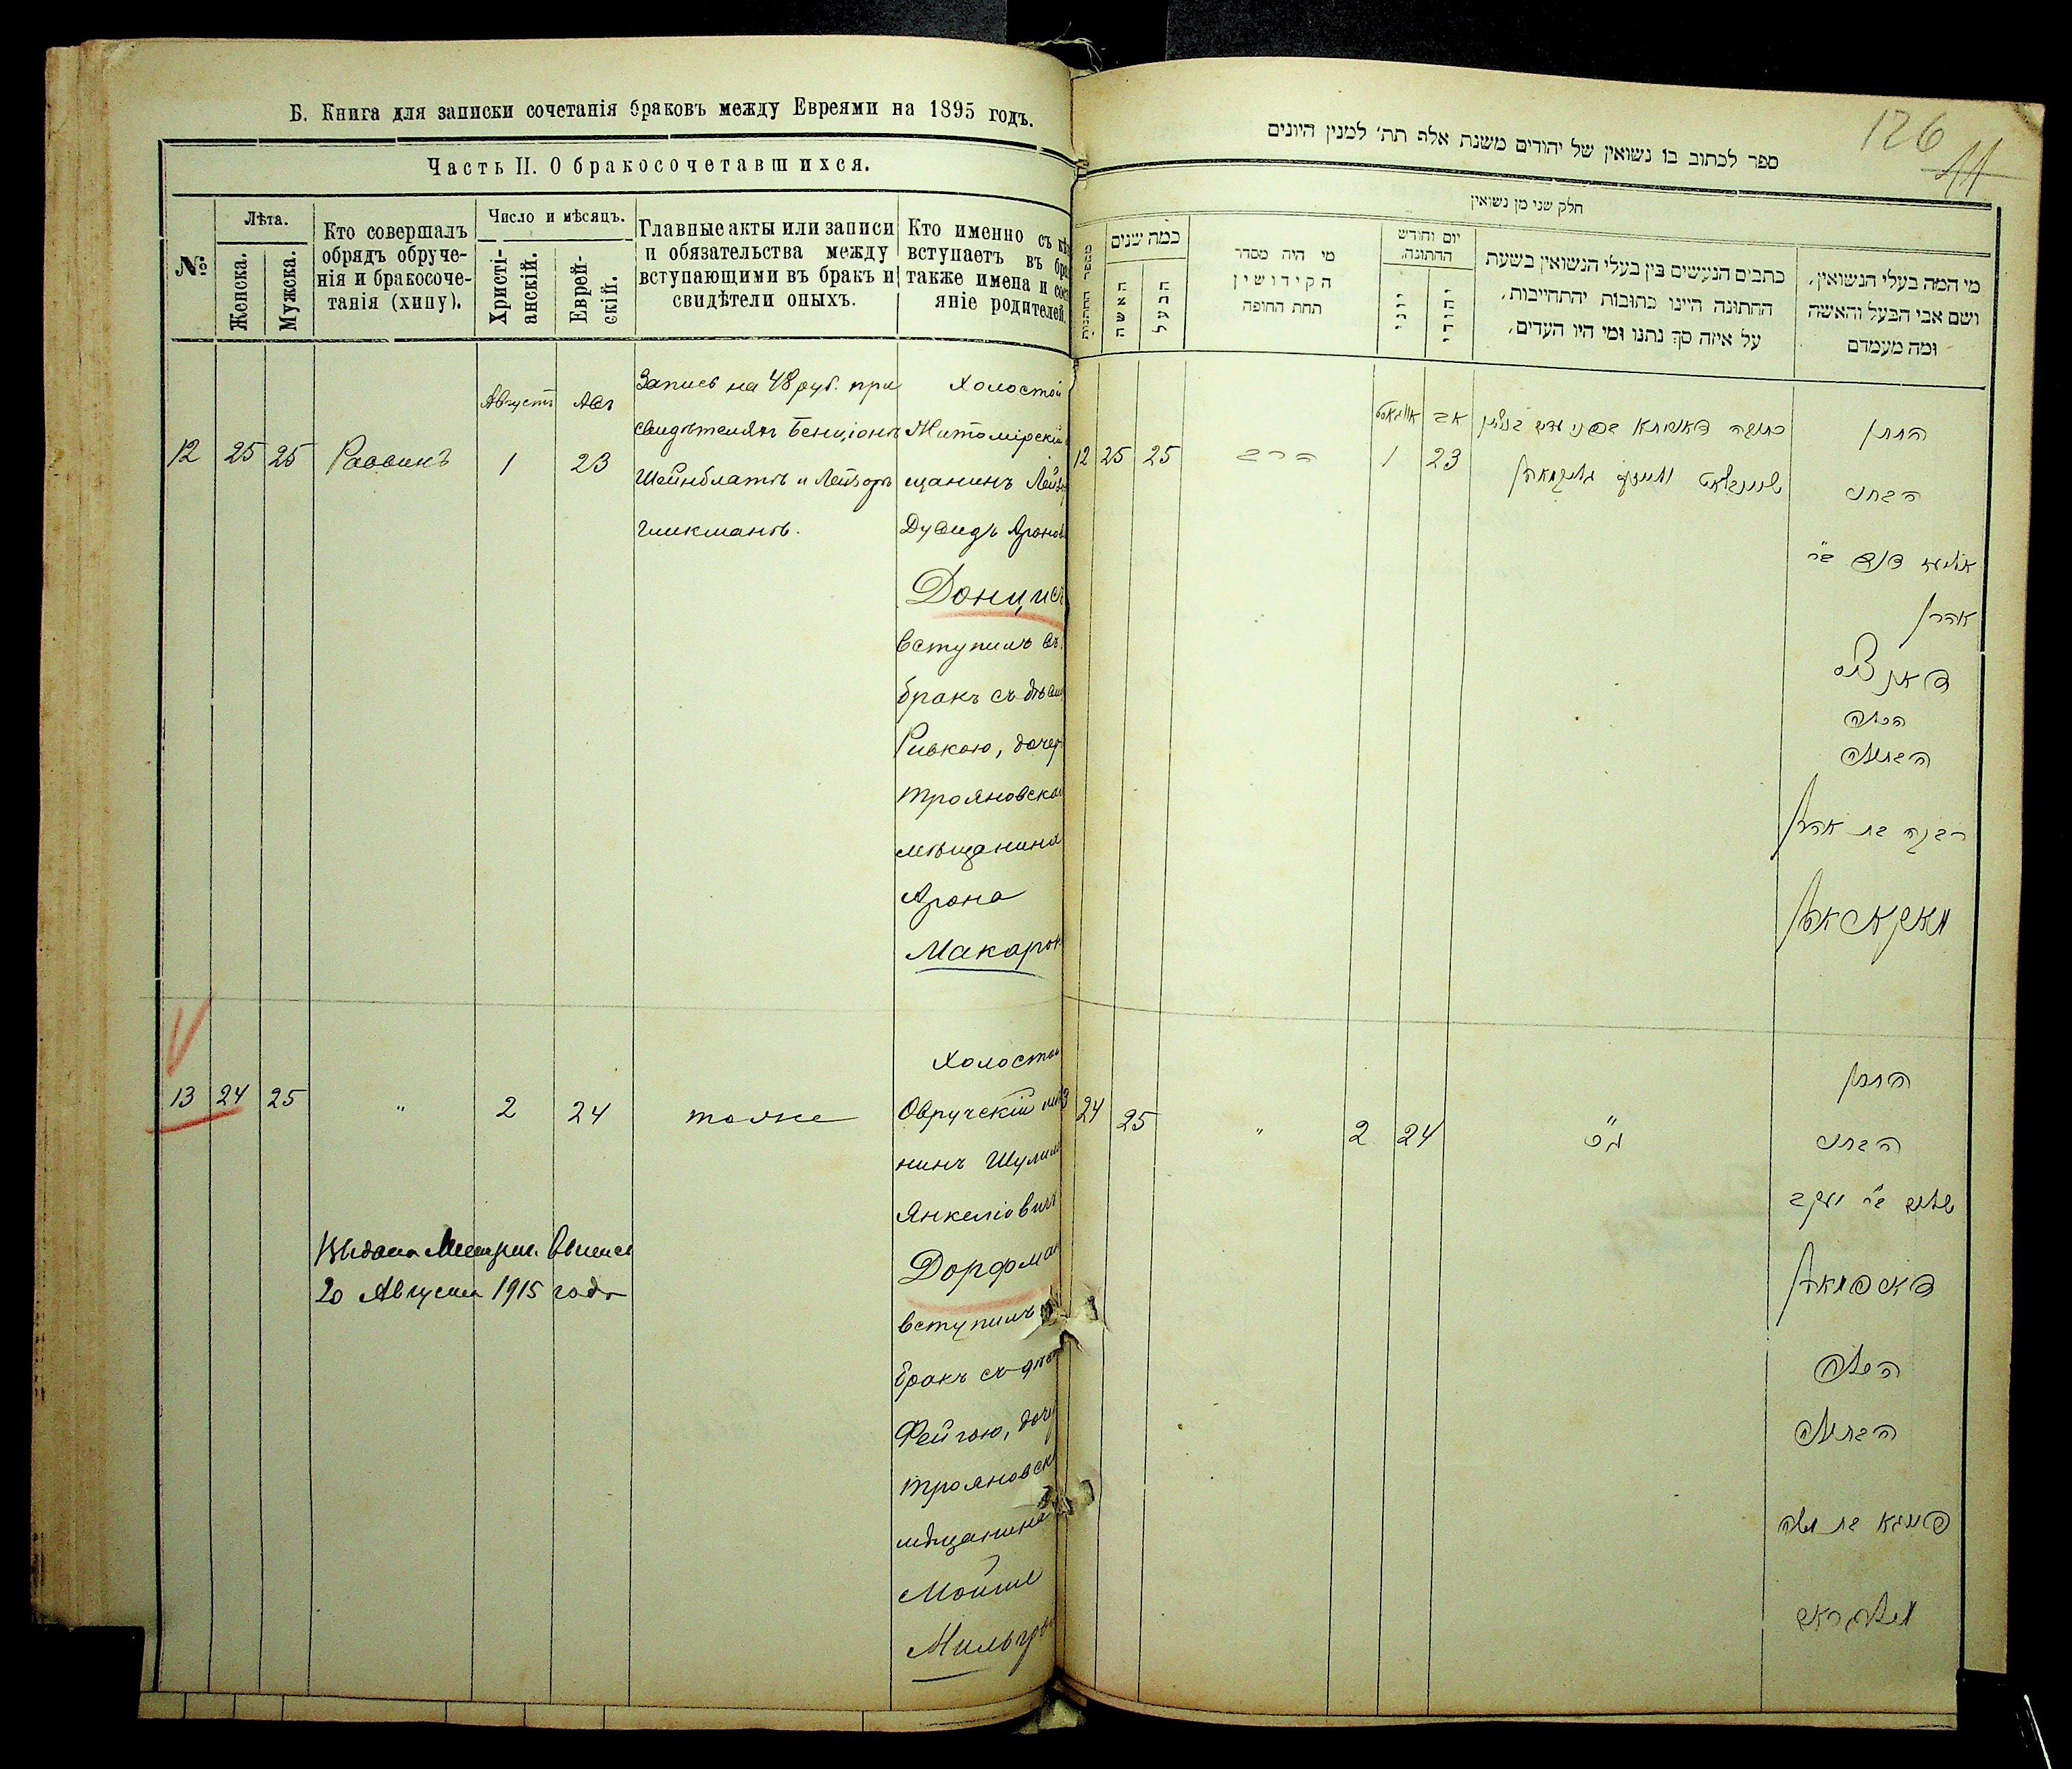 Б. Книга для записки сочетанія браковъ между Евреями на 1895 годъ.
Часть II. О бракосочетавшихся.
№
Лѣта.
Женска.
Мужска.
Кто совершалъ
обрядъ обруче-
нія и бракосоче-
танія (хипу).
Число и мѣсяцъ.
Христі-
анскій.
Еврей-
скій.
Главные акты или записи
и обязательства между
вступающими въ бракъ и
свидѣтели оныхъ.
Кто именно съ
вступаетъ въ
также имена и
яніе родителей.
12
25
25
Раввинъ
Августъ
1
Авъ
23
Запись на 48 руб. при
свидѣтеляхъ Бенціонъ
Шейнблатъ и Лейзоръ
Гликманъ.
Холостой
Житомірскій
щанинъ
Дувидъ Арон
Донцис
вступилъ въ
бракъ съ
Ривкою, дочер
Трояновска
мѣщанина
Арона
Макарон
13
24
25
"
2
24
тоже
Холостой
Овручскій
нинъ Шулим
Янкеліович
Дорфман
вступилъ
бракъ съ
Фейгою, доч
Трояновск
мѣщанина
Мойше
Мильгро
Выдана Метрич. Выпись
20 Августа 1915 года
126
11
ספר לכתוב בו נשואין של יהודים משנת אלף תת' למנין היונים
חלק שני מן נשואין
מספר החתונות
כמה שנים
האשה
הבעל
מי היה מסדר
הקידושין
תחת החופה
יום וחודש
החתונה
יוני
יהודי
כתבים הנעשים בין בעלי הנשואין בשעת
החתונה היינו כתובות יהתחייבות,
על איזה סך נתנו ומי היו העדים,
מי המה בעלי הנשואין,
ושם אבי הבעל והאשה
ומה מעמדם
12
25
25
הרב
אויגאסט
1
אב
23
החתן
הבחור
אהרן
דאנציס
הכלה
הבתולה
רבקה בת אהרן
מאקאראן
24
25
"
2
24
כ"נ
החתן
הבחור
שלום ב"ר יעקב
דארפמאן
הכלה
הבתולה
פייגא בת משה
מילגראם